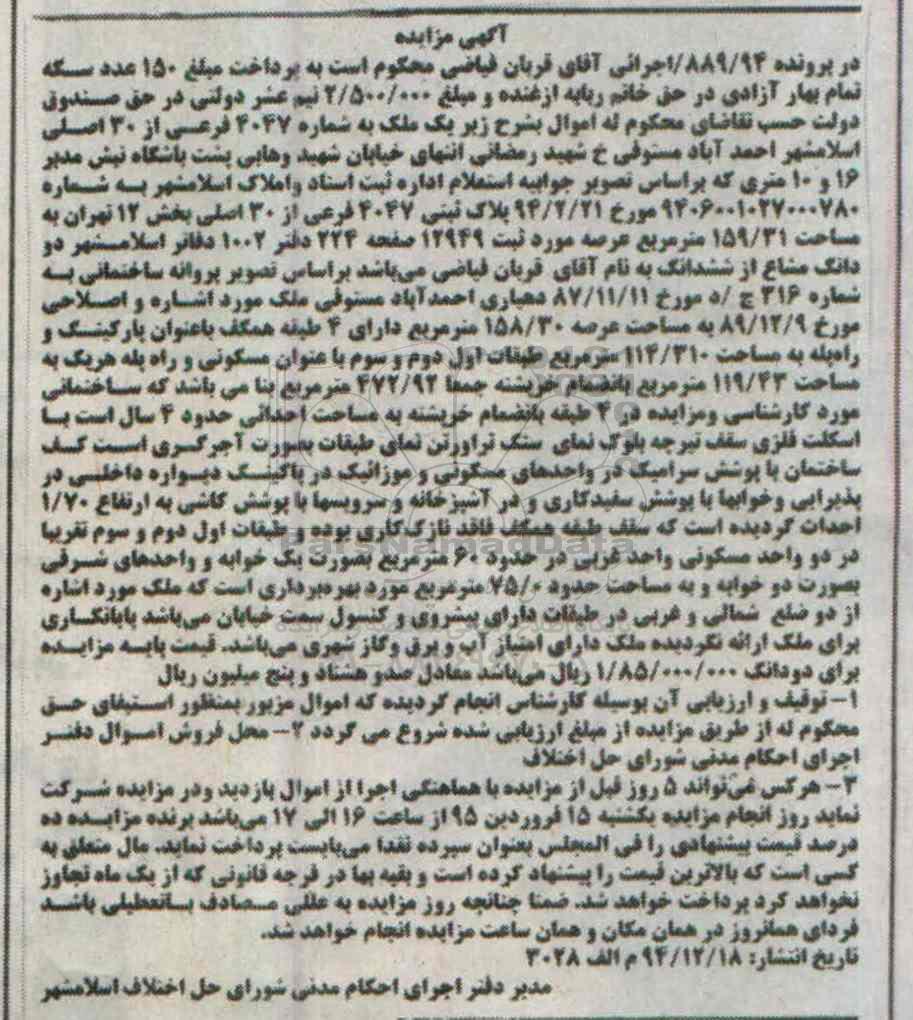 آگهی مزایده
در پرونده ۸۸۹/۹۴/اجرائی آقای قربان فیاضی محکوم است به پرداخت مبلغ ۱۵۰ عدد سکه
تمام بهار آزادی در حق خانم ربابه ازغنده و مبلغ ۲/۵۰۰/۰۰۰ نیم عشر دولتی در حق صندوق
دولت حسب تقاضای محکوم له اموال بشرح زیر یک ملک به شماره ۴۰۴۷ فرعی از ۳۰ اصلی
اسلامشهر احمد آباد مستوفی خ شهید رمضانی انتهای خیابان شهید وهابی پشت باشگاه نبش مدبر
۱۶ و ۱۰ متری که براساس تصویر جوابیه استعلام اداره ثبت اسناد واملاک اسلامشهر به شماره
۹۴۰۶۰۰۱۰۲۷۰۰۰۷۸۰ مورخ ۹۴/۲/۲۱ پلاک ثبتی ۴۰۴۷ فرعی از ۳۰ اصلی بخش ۱۲ تهران به
مساحت ۱۵۹/۳۱ مترمربع عرصه مورد ثبت ۱۲۹۴۹ صفحه ۲۲۴ دفتر ۱۰۰۲ دفاتر اسلامشهر دو
دانگ مشاع از ششدانگ به نام آقای قربان فیاضی می‌باشد براساس تصویر پروانه ساختمانی به
شماره ۳۱۶ چ /د مورخ ۸۷/۱۱/۱۱ دهیاری احمدآباد مستوفی ملک مورد اشاره و اصلاحی
مورخ ۸۹/۱۲/۹ به مساحت عرصه ۱۵۸/۳۰ مترمربع دارای ۴ طبقه همکف باعنوان پارکینگ و
راه‌پله به مساحت ۱۱۴/۳۱۰ مترمربع طبقات اول دوم و سوم با عنوان مسکونی و راه پله هریک به
مساحت ۱۱۹/۴۳ مترمربع بانضمام خرپشته جمعا ۴۷۲/۹۲ مترمربع بنا می باشد که ساختمانی
مورد کارشناسی ومزایده در ۴ طبقه بانضمام خرپشته به مساحت احداثی حدود ۴ سال است با
اسکلت فلزی سقف تیرچه بلوک نمای سنگ تراورتن نمای طبقات بصورت آجرگری است کف
ساختمان با پوشش سرامیک در واحدهای مسکونی و موزائیک در پاکینگ دیواره داخلی در
پذیرایی وخوابها با پوشش سفیدکاری و در آشپزخانه و سرویسها با پوشش کاشی به ارتفاع ۱/۷۰
احداث گردیده است که سقف طبقه همکف فاقد نازک‌کاری بوده و طبقات اول دوم و سوم تقریبا
در دو واحد مسکونی واحد غربی در حدود ۶۰ مترمربع بصورت یک خوابه و واحدهای شرقی
بصورت دو خوابه و به مساحت حدود ۷۵/۰ مترمربع مورد بهره‌برداری است که ملک مورد اشاره
از دو ضلع شمالی و غربی در طبقات دارای پیشروی و کنسول سمت خیابان می‌باشد پایانکاری
برای ملک ارائه نگردیده ملک دارای امتیاز آب و برق وگاز شهری می‌باشد. قیمت پایه مزایده
برای دودانگ ۱/۸۵/۰۰۰/۰۰۰ ریال می‌باشد معادل صدو هشتاد و پنج میلیون ریال
۱- توقیف و ارزیابی آن بوسیله کارشناس انجام گردیده که اموال مزبور بمنظور استیفای حق
محکوم له از طریق مزایده از مبلغ ارزیابی شده شروع می گردد ۲- محل فروش اموال دفتر
اجرای احکام مدنی شورای حل اختلاف
۳- هرکس می‌تواند ۵ روز قبل از مزایده با هماهنگی اجرا از اموال بازدید ودر مزایده شرکت
نماید روز انجام مزایده یکشنبه ۱۵ فروردین ۹۵ از ساعت ۱۶ الی ۱۷ می‌باشد برنده مزایده ده
درصد قیمت پیشنهادی را فی المجلس بعنوان سپرده نقدا می‌بایست پرداخت نماید. مال متعلق به
کسی است که بالاترین قیمت را پیشنهاد کرده است و بقیه بها در فرجه قانونی که از یک ماه تجاوز
نخواهد کرد پرداخت خواهد شد. ضمنا چنانچه روز مزایده به عللی مصادف باتعطیلی باشد
فردای همانروز در همان مکان و همان ساعت مزایده انجام خواهد شد.
تاریخ انتشار: ۹۴/۱۲/۱۸ م الف ۳۰۲۸
مدیر دفتر اجرای احکام مدنی شورای حل اختلاف اسلامشهر
ParsNamadData